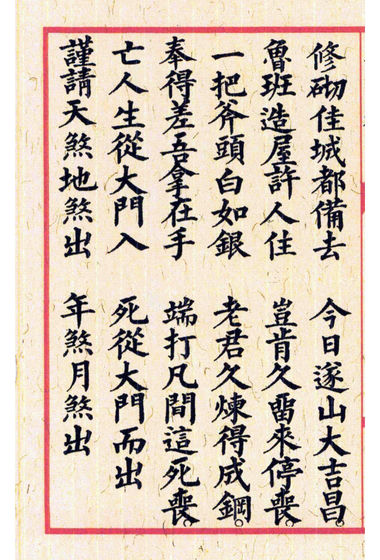 修砌佳城都備去 今日遂山大吉昌。
魯班造屋許人住 豈肯久畱來停喪。
一把斧頭白如銀 老君久煉得成鋼。
奉得差吾拿在手 端打凡間這死喪。
亡人生從大門入 死從大門而出
謹請天煞地煞出 年煞月煞出